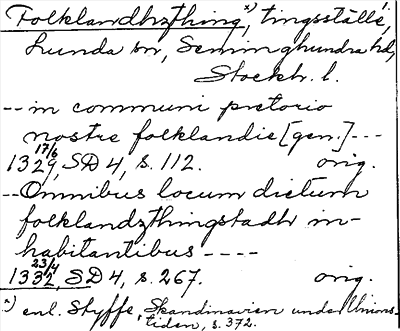 Folklandhzthing,*) tingsställe,
Lunda sn, Seminghundra hd,
Stockh. l.
-- in communi pretorio
nostre folklandie [gen.] ---
17/6
1329, SD 4, s. 112. orig.
-- Omnibus locum dictum
folklandzthingstadh in-
habitantibus ----
23/4
1332, SD 4, s. 267. orig.
*) enl. Styffe, Skandinavien under Unions-
tiden, s. 372.